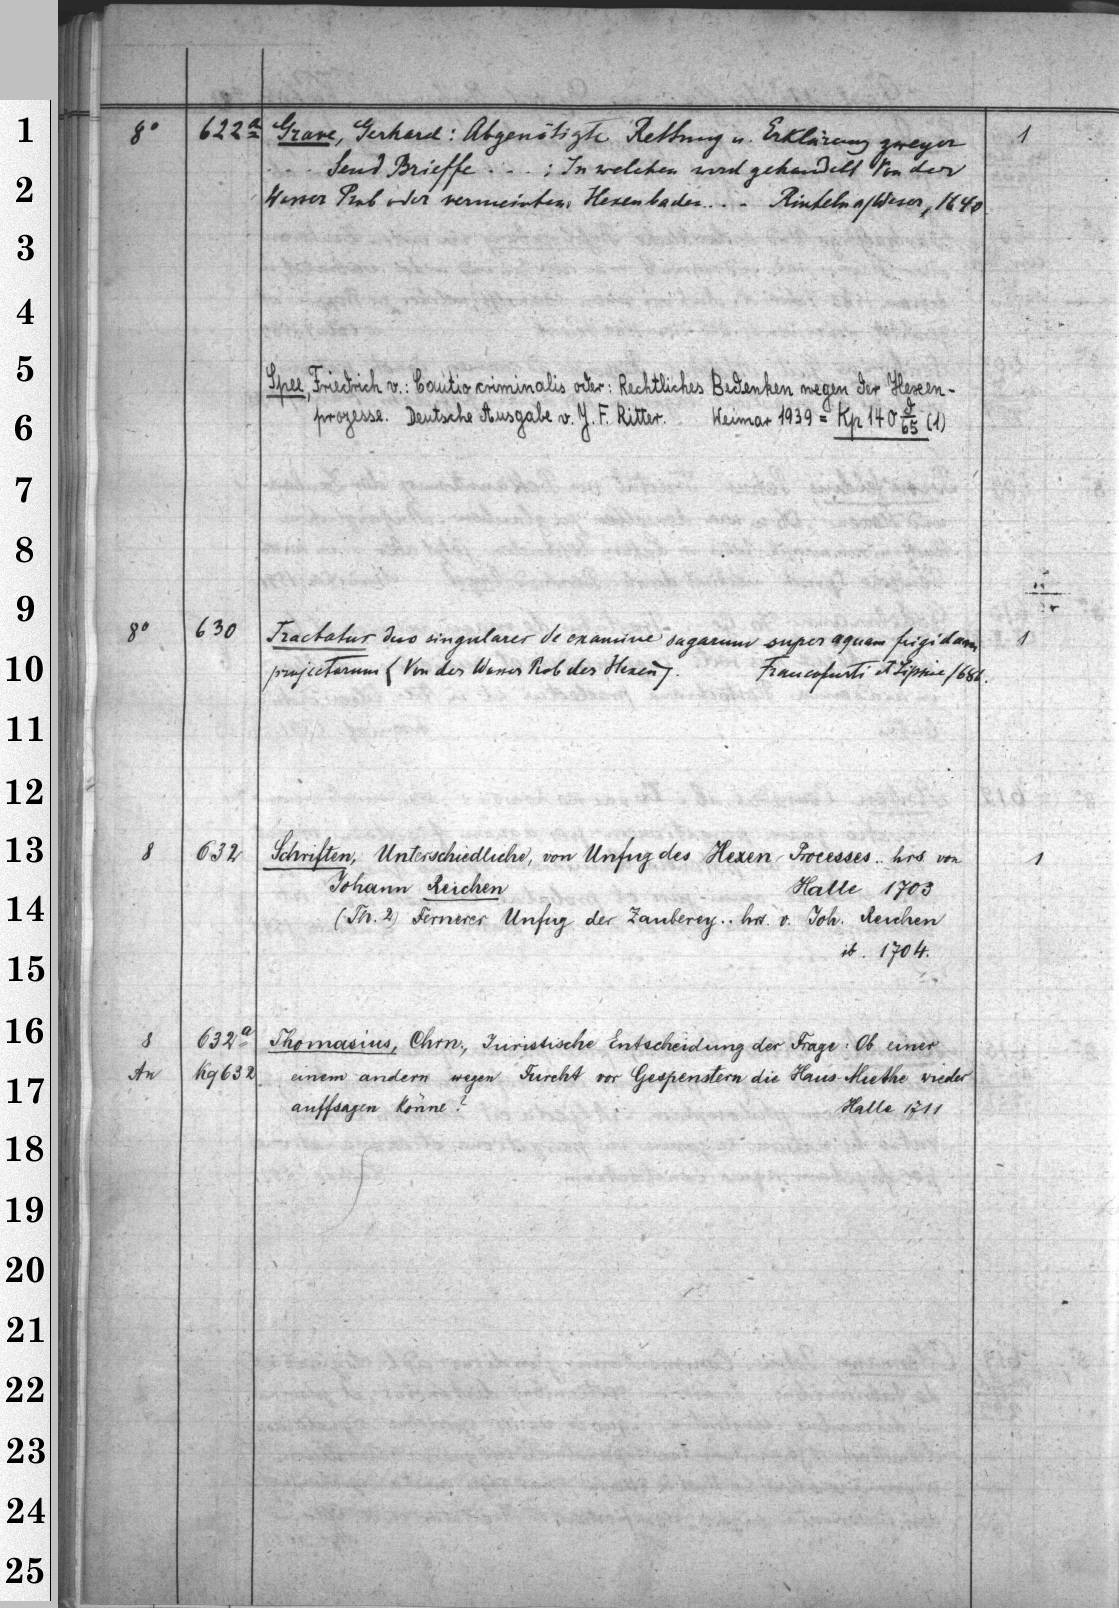 1
2
3
4
5
6
7
8
9
10
11
12
13
14
15
16
17
18
19
20
21
22
23
24
25
8° 622a Grave, Gerhard: Abgenötigte Rettung u. Erklärung zweyer 1
. . . Send Brieffe . . . : In welchen wird gehandelt Von der
Wasser Prob oder vermeinten Hexenbader . . . Rinteln a/Weser, 1640
Spee, Friedrich v.: Cautio criminalis oder: Rechtliches Bedenken wegen der Hexen-
prozesse. Deutsche Ausgabe v. J. F. Ritter. Weimar 1939 = Kp 140 d/65 (1)
8° 630 Tractatus duo singulares de examine sagarum super aquam frigidam 1
projectarum (Von der Wasser Prob der Hexen). Francofurti et Lipsiae 1686.
8 632 Schriften, Unterschiedliche, von Unfug des Hexen-Processes.. hrs von 1
Johann Reichen Halle 1703
(Th. 2) Fernerer Unfug der Zauberey.. hrs. v. Joh. Reichen
ib. 1704.
8 632a Thomasius, Chrn., Juristische Entscheidung der Frage: Ob einer
An Kg632 einem andern wegen Furcht vor Gespenstern die Haus-Miethe wieder
auffsagen könne? Halle 1711